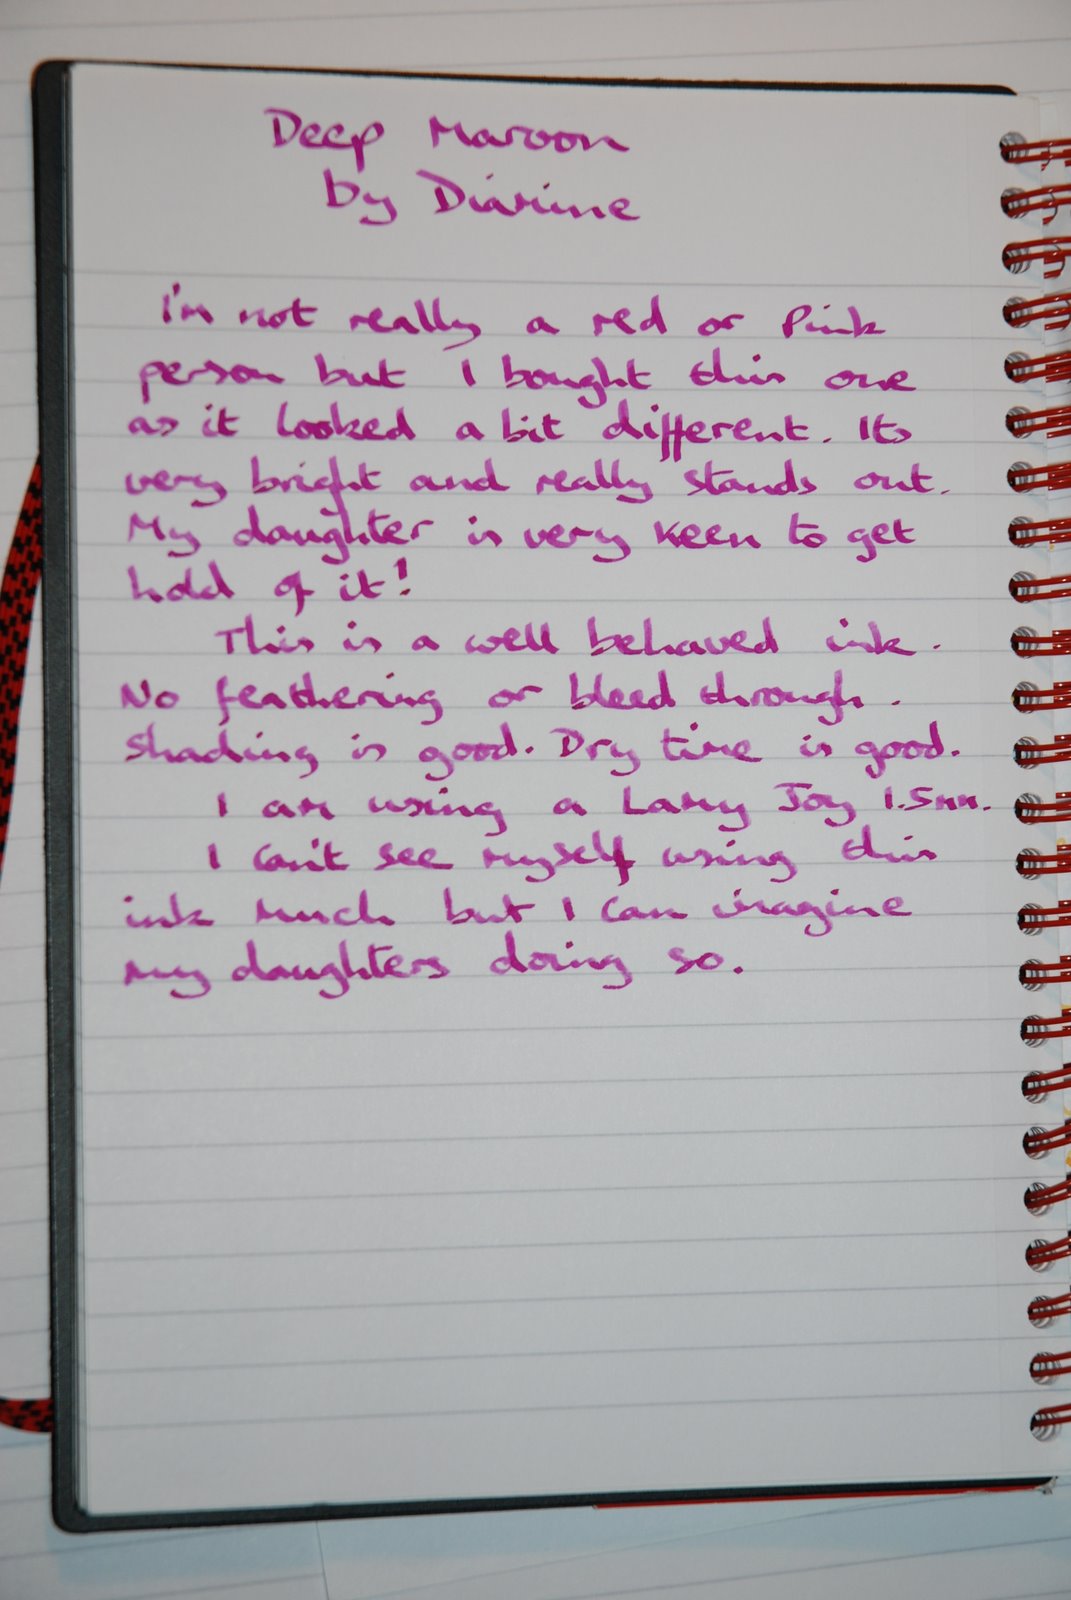 Deep Maroon
by Diamine
I'm not really a red or Pink
person but I bought this one
as it looked a bit different. Its
very bright and really stands out.
My daughter is very keen to get
hold of it!
This is a well behaved ink.
No feathering or bleed through.
Shading is good. Dry time is good.
I am using a Lamy Joy 1.5mm.
I can't see myself using this
ink much but I can imagine
my daughters doing so.